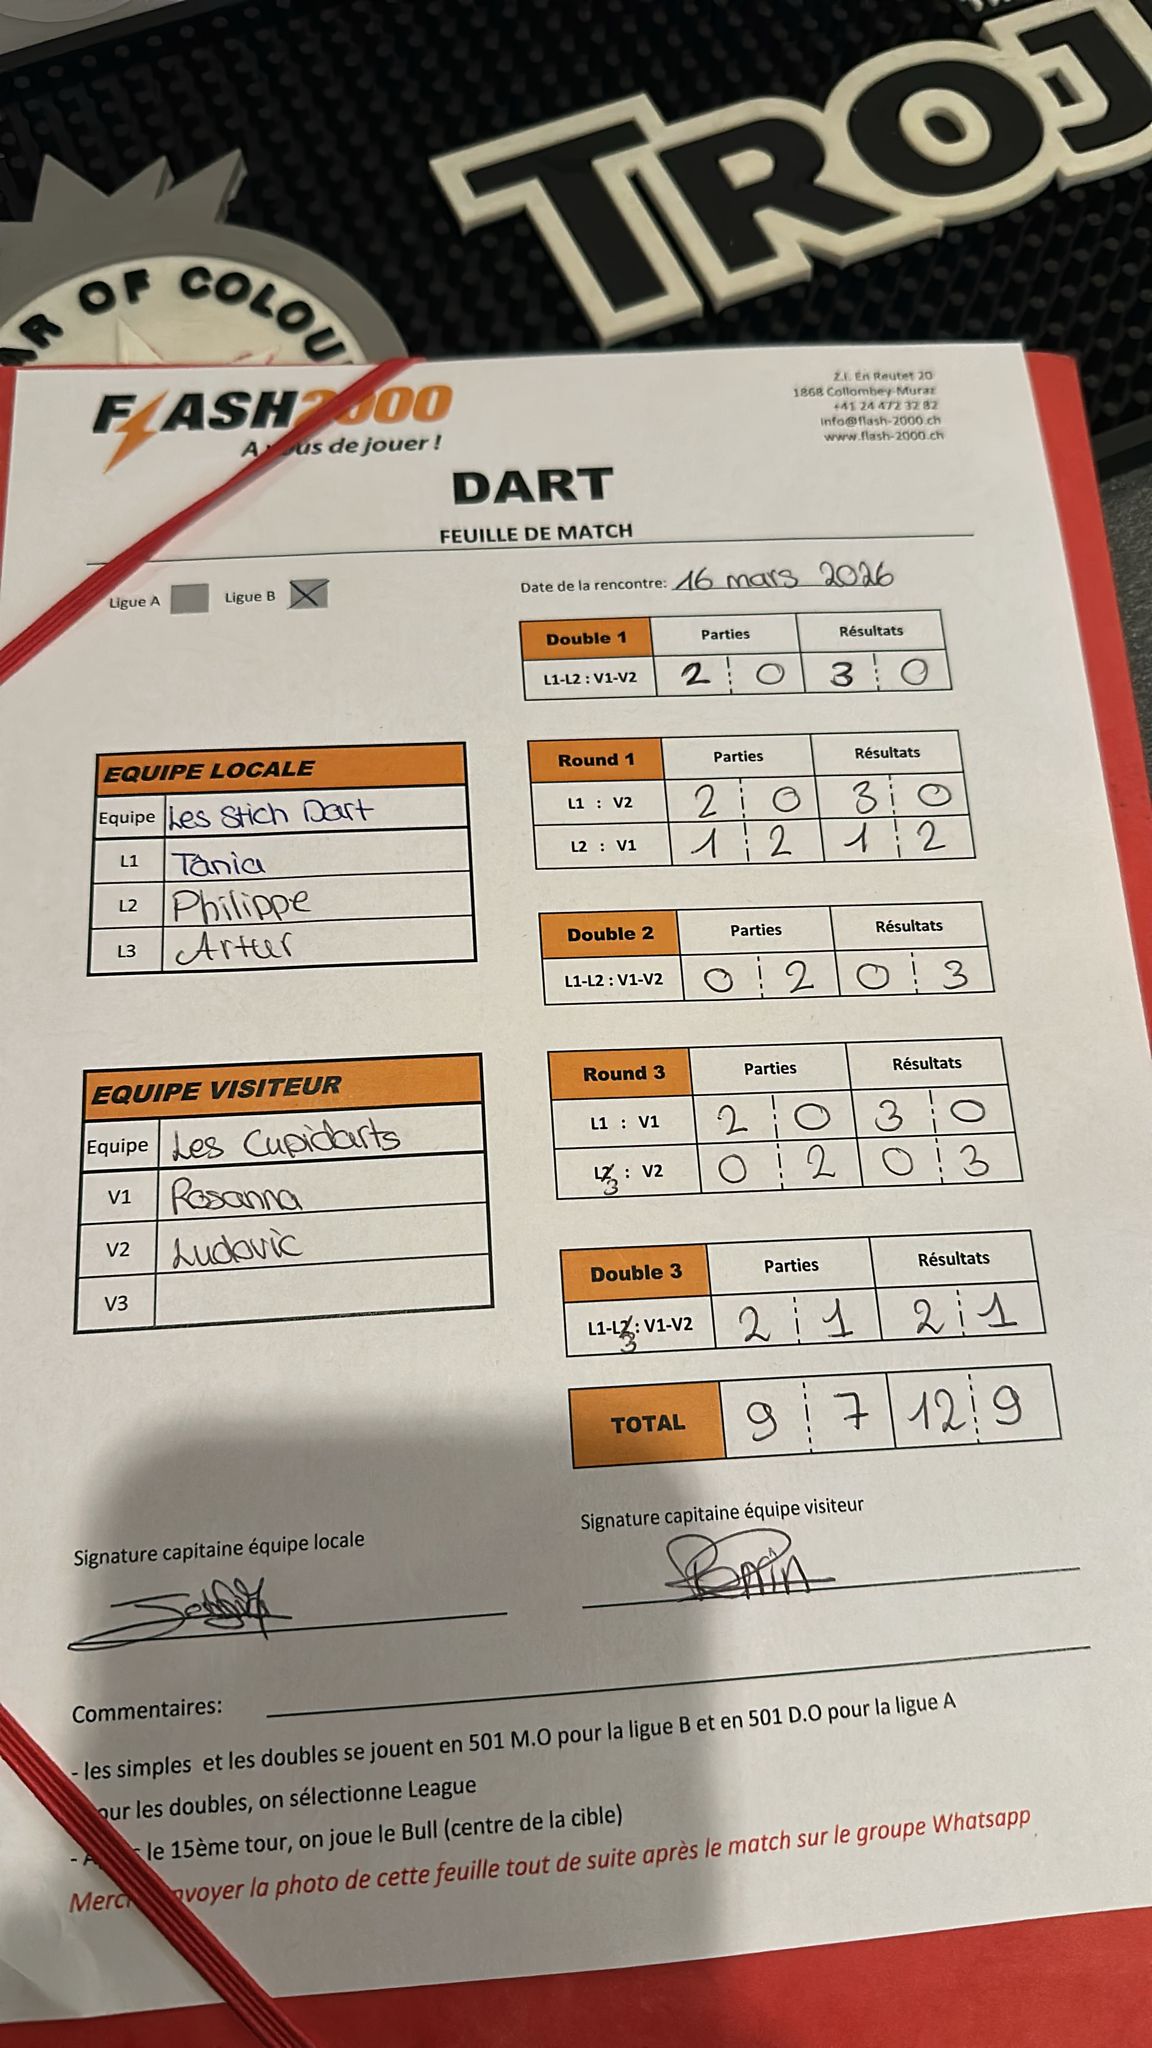 TROJ
OF COLOU
FLASH2000
de jouer !
Z.I. En Reutet 20
1868 Collombey-Muraz
+41 24 472 32 82
info@flash-2000.ch
www.flash-2000.ch
DART
FEUILLE DE MATCH
Ligue A
Ligue B X
Date de la rencontre: 16 mars 2026
Double 1 Parties Résultats
L1-L2 : V1-V2 2 0 3 0
EQUIPE LOCALE
Equipe Les Stich Dart
L1 Tânia
L2 Philippe
L3 Artur
Round 1 Parties Résultats
L1 : V2 2 0 3 0
L2 : V1 1 2 1 2
Double 2 Parties Résultats
L1-L2 : V1-V2 0 2 0 3
EQUIPE VISITEUR
Equipe Les Cupidarts
V1 Rosanna
V2 Ludovic
V3
Round 3 Parties Résultats
L1 : V1 2 0 3 0
L2 : V2 0 2 0 3
3
Double 3 Parties Résultats
L1-L2 : V1-V2 2 1 2 1
3
TOTAL 9 7 12 9
Signature capitaine équipe locale
Signature capitaine équipe visiteur
Commentaires:
- les simples et les doubles se jouent en 501 M.O pour la ligue B et en 501 D.O pour la ligue A
les doubles, on sélectionne League
- le 15ème tour, on joue le Bull (centre de la cible)
la photo de cette feuille tout de suite après le match sur le groupe Whatsapp